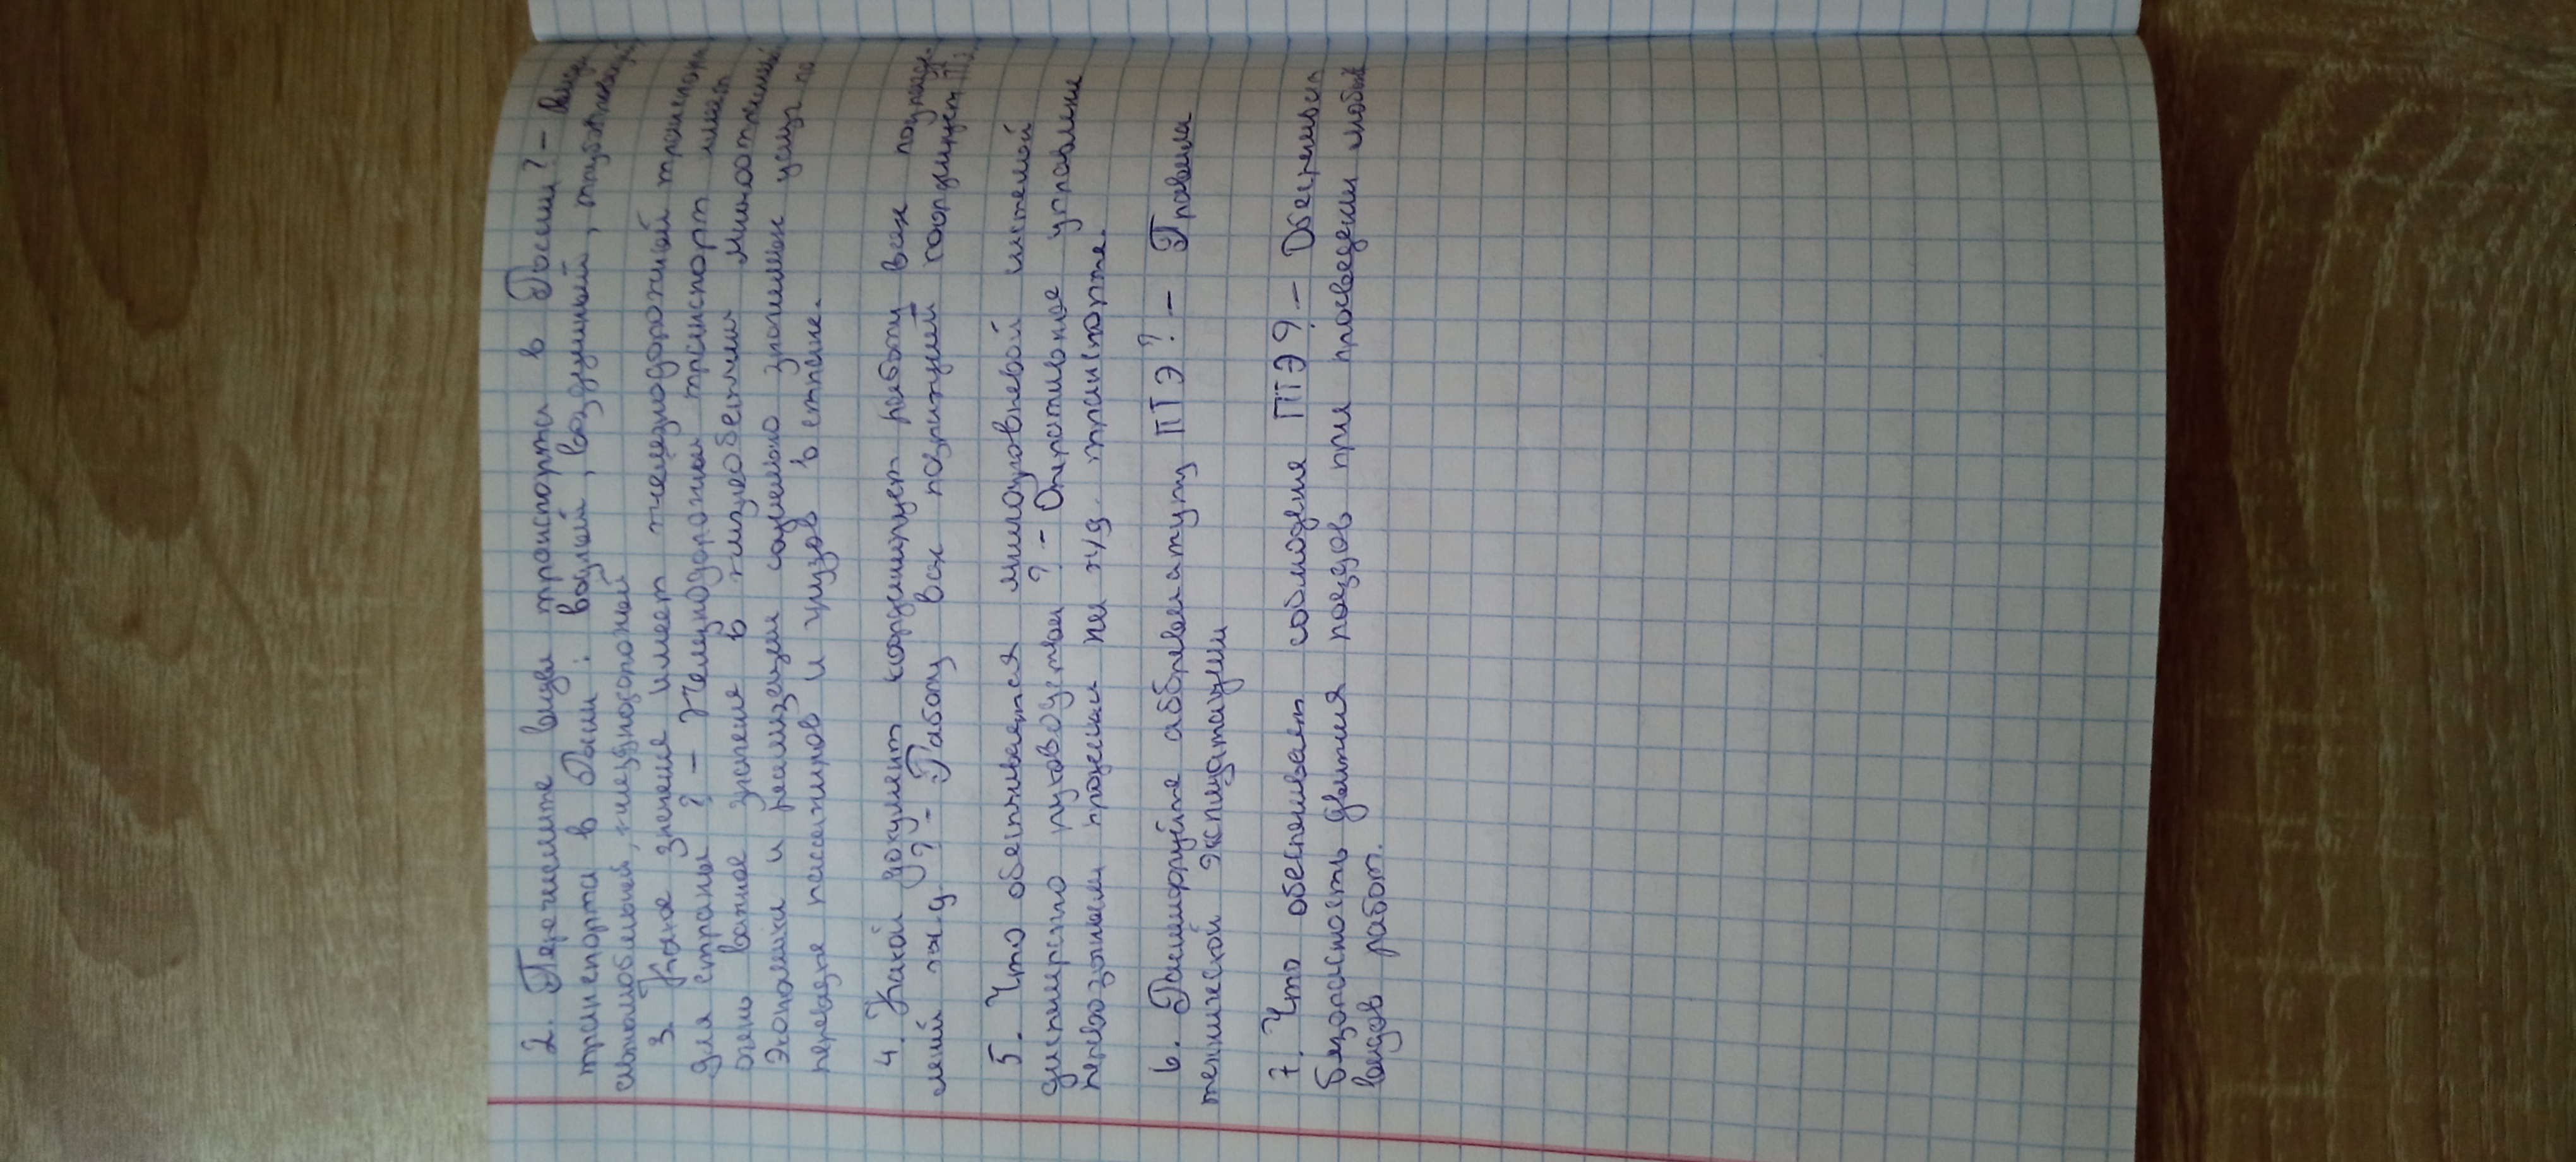 2. Перечислите виды транспорта в России? – Виды
транспорта в России: водный, воздушный, трубопроводный,
автомобильный, железнодорожный
3. Какое значение имеет железнодорожный транспорт
для страны? – Железнодорожный транспорт имеет
очень важное значение в жизнеобеспечении многоотраслевой
экономики и реализации социально значимых услуг по
перевозке пассажиров и грузов в стране.
4. Какой документ координирует работу всех подразде-
лений ж.д? – Работу всех позиций координирует ПТЭ
5. Что обеспечивается многоуровневой системой
диспетчерского руководства? – Оперативное управление
перевозочными процессами на ж/д транспорте.
6. Расшифруйте аббревиатуру ПТЭ? – Правила
технической эксплуатации
7. Что обеспечивает соблюдение ПТЭ? – Обеспечивает
безопасность движения поездов при проведении любых
видов работ.